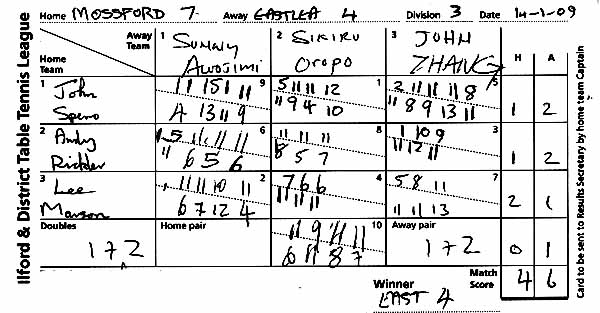 Ilford & District Table Tennis League
Home MOSSFORD 7 Away EASTLEA 4 Division 3 Date 14-1-09
Away Team 1 SUNNY AWOJIMI 2 SIKIRU OROPO 3 JOHN ZHANG H A
Home Team
1 John Spero 9 1 5 1 2
11 11 12
11 9 4 10 11 8 9 13 11
2 Andy Rickler 6 8 3 1 2
11 6 5 6 8 5 7 11 12 11
3 Lee Manson 2 4 7 2 1
11 11 10 11 7 6 6 5 8 11
6 7 12 4 11 11 11 11 11 13
Doubles 1 + 2 Home pair 10 Away pair 1 + 2 0 1
11 9 11 11
6 11 8 7
Winner EAST 4 Match Score 4 6
Card to be sent to Results Secretary by home team Captain